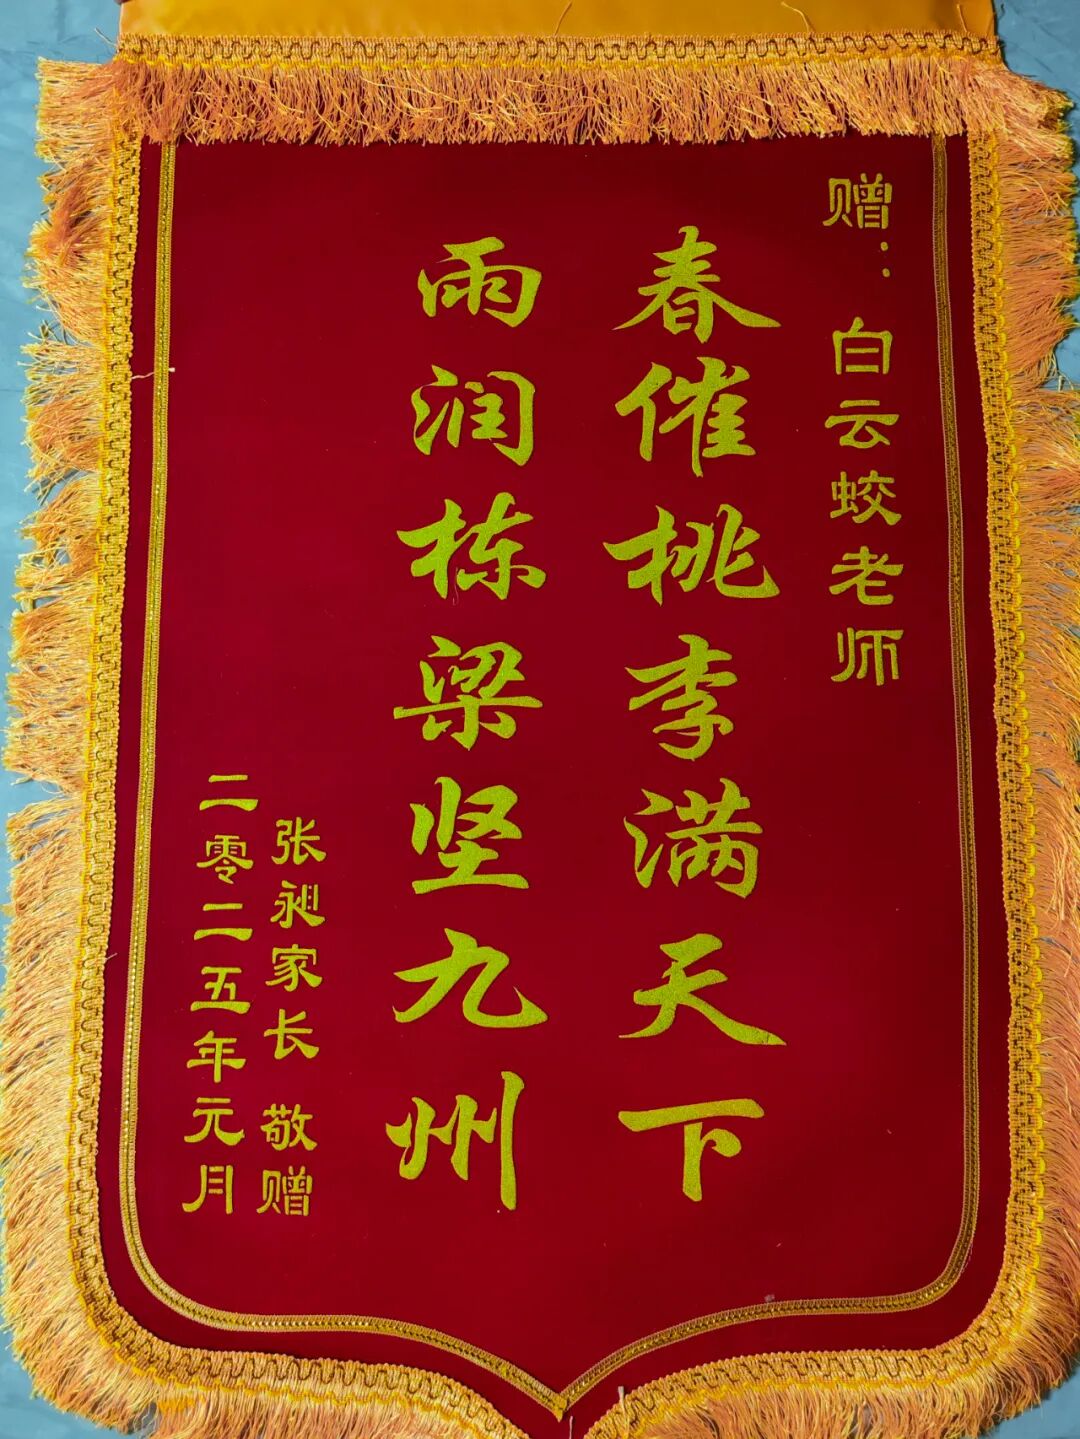 赠：白云蛟老师
春催桃李满天下
雨润栋梁坚九州
张昶家长 敬赠
二零二五年元月